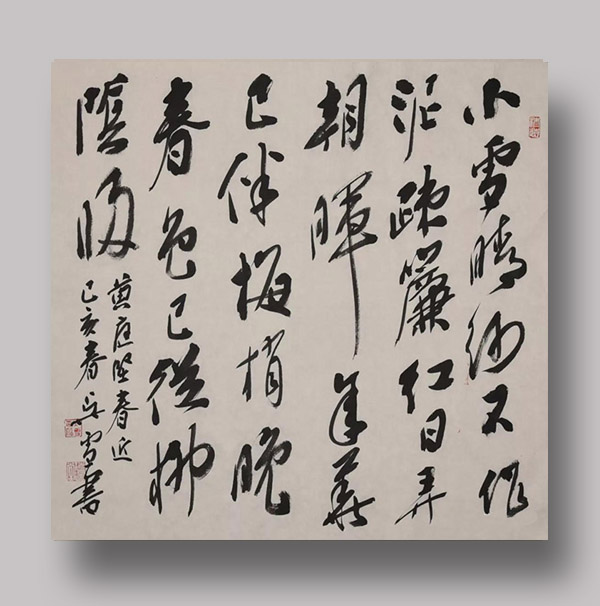 小雪晴沙不作
泥疎簾红日弄
朝暉年華
已伴梅梢晚
春色已從柳
陰歸
黄庭堅春近
己亥春吴雪書